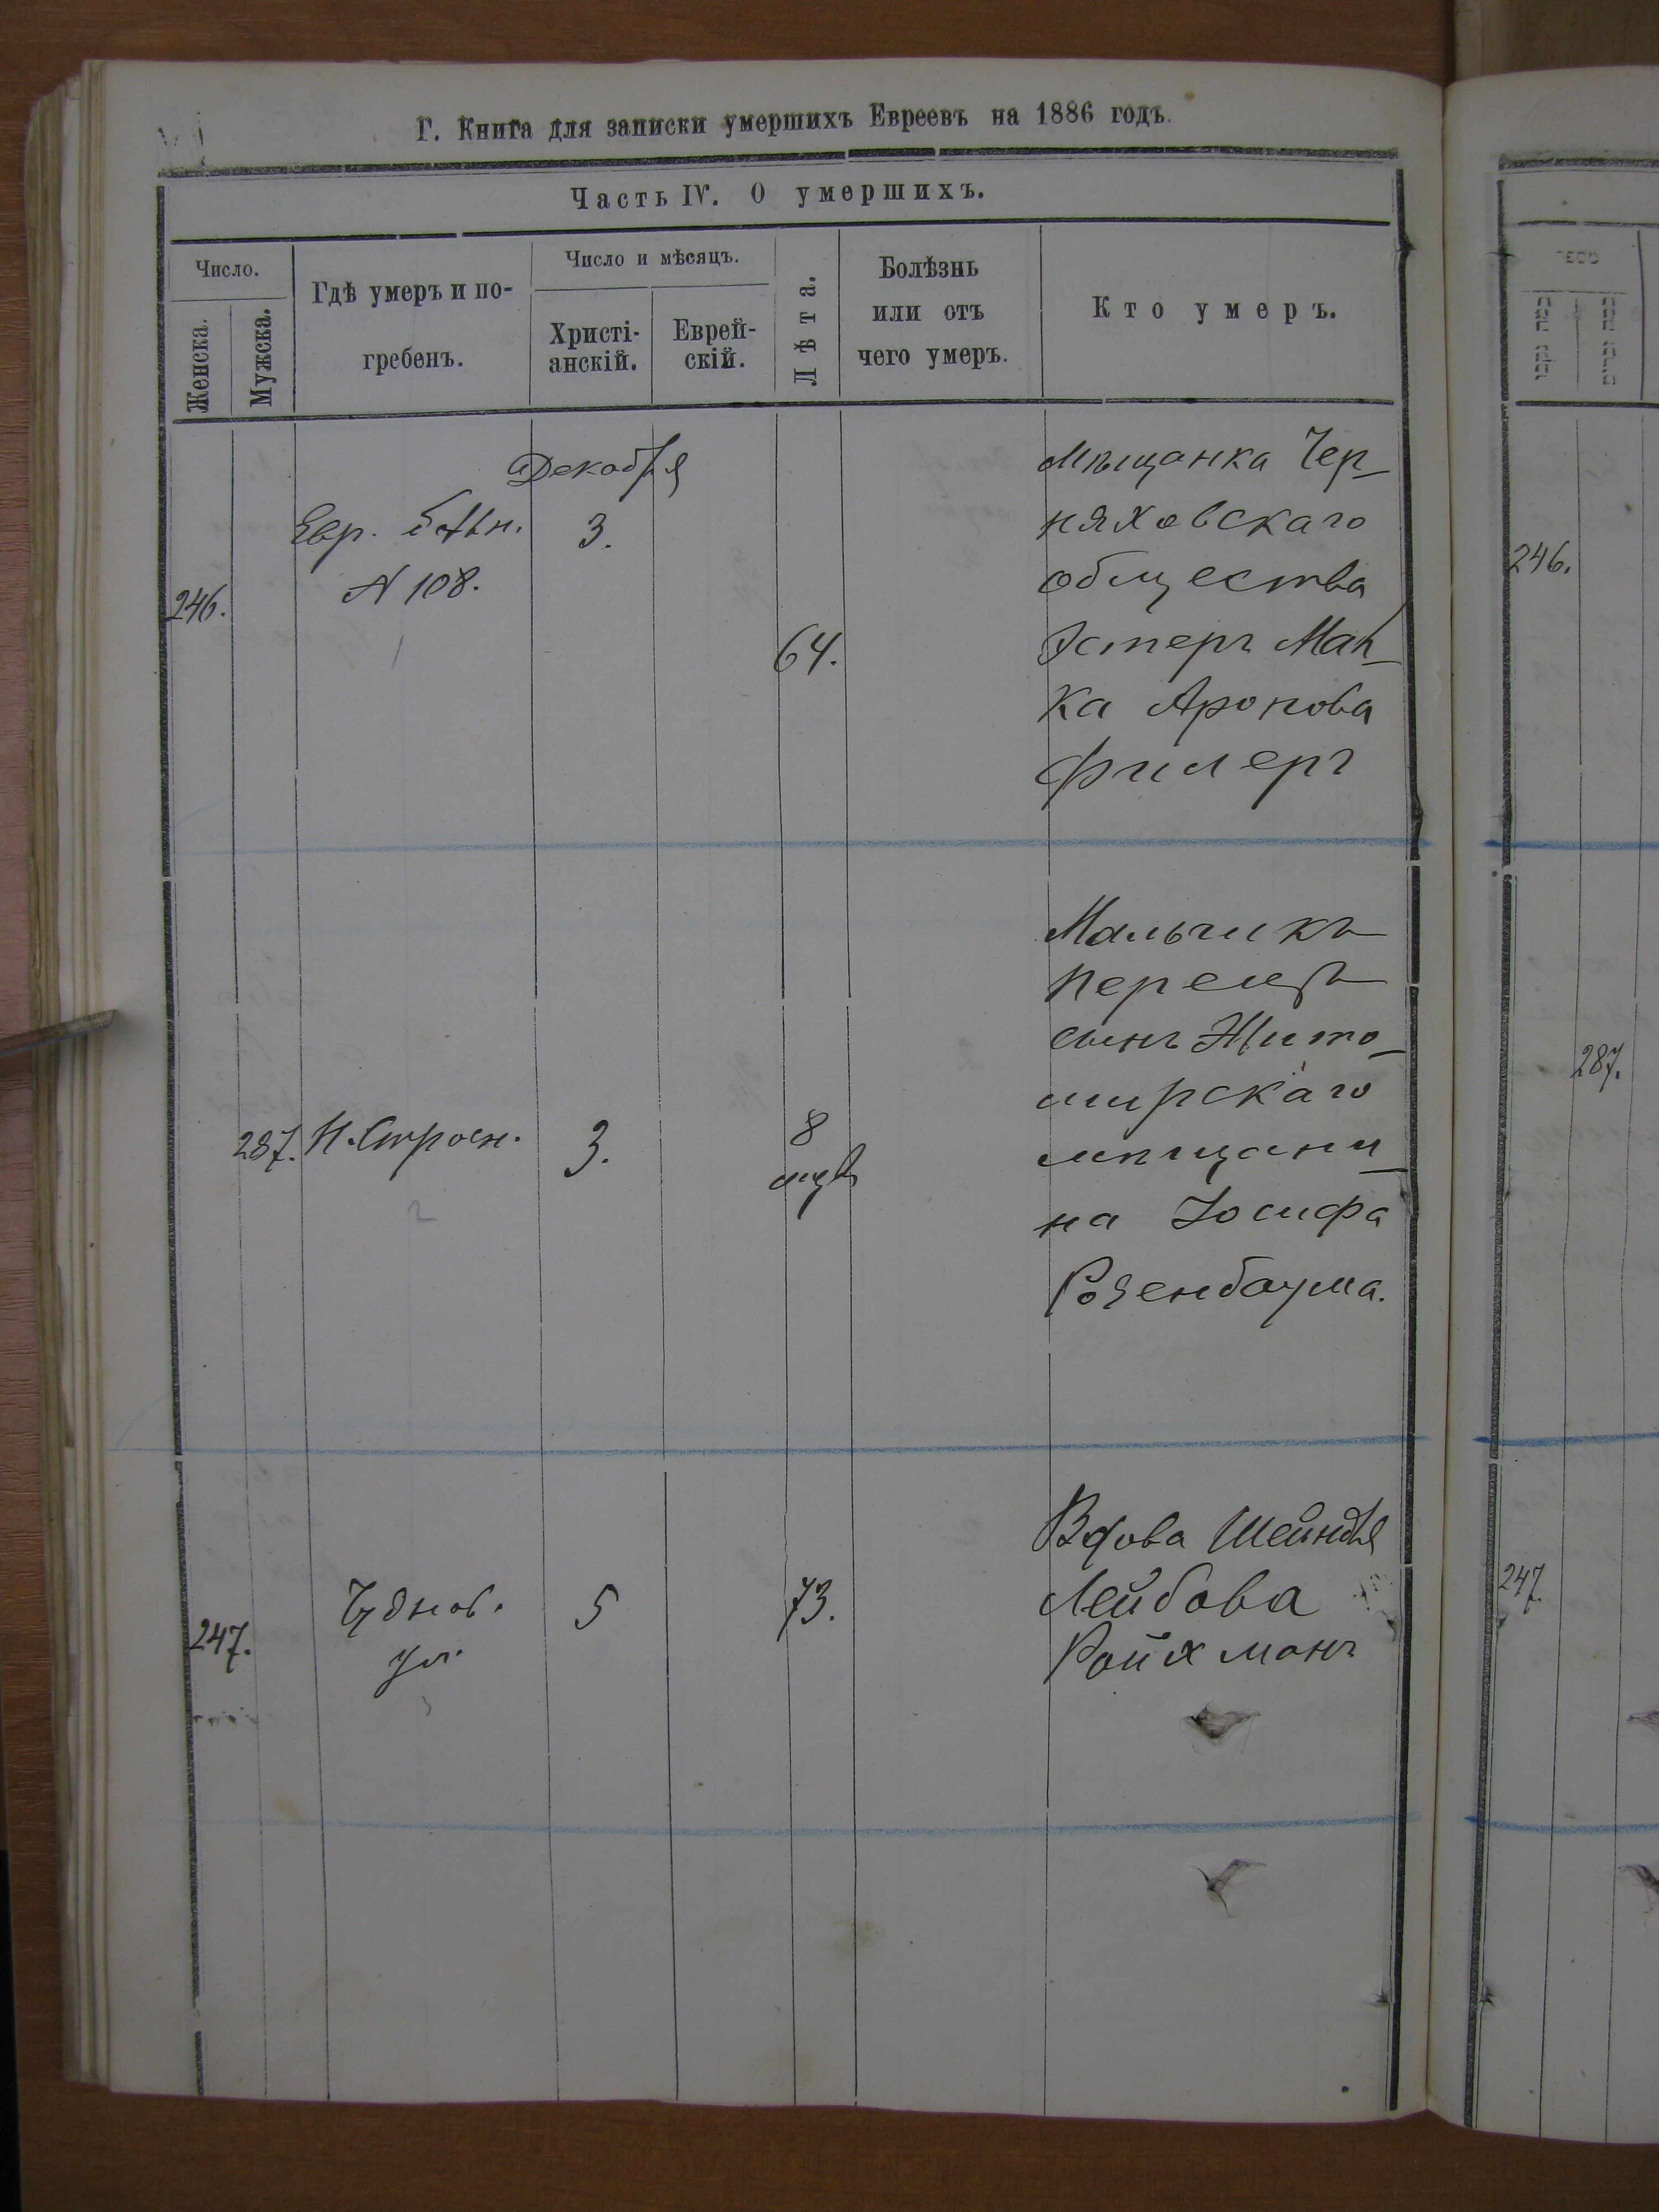 Г. Книга для записки умершихъ Евреевъ на 1886 годъ.
Часть IV. О умершихъ.
Число.
Женска.
Мужска.
Гдѣ умеръ и по-
гребенъ.
Число и мѣсяцъ.
Христі-
анскій.
Еврей-
скій.
Лѣта.
Болѣзнь
или отъ
чего умеръ.
Кто умеръ.
Декабря
246.
Евр.
N 108.
1
3.
64.
Мѣщанка Чер-
няховскаго
общества
Эстеръ Мап-
ка Аронова
Филеръ
287.
Н. Строен.
2
3.
8
мцв
Мальчикъ
Перецъ
сынъ Жито-
мирскаго
мѣщани-
на Іосифа
Розенбаума.
247.
Чуднов.
ул.
3
5
73.
Вдова Шейндля
Лейбова
Райхманъ
246.
287.
247